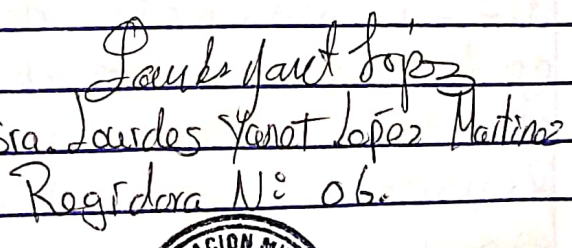 Lourdes Yanet López
Sra. Lourdes Yanet López Martinez
Regidora N: 06.
CION M